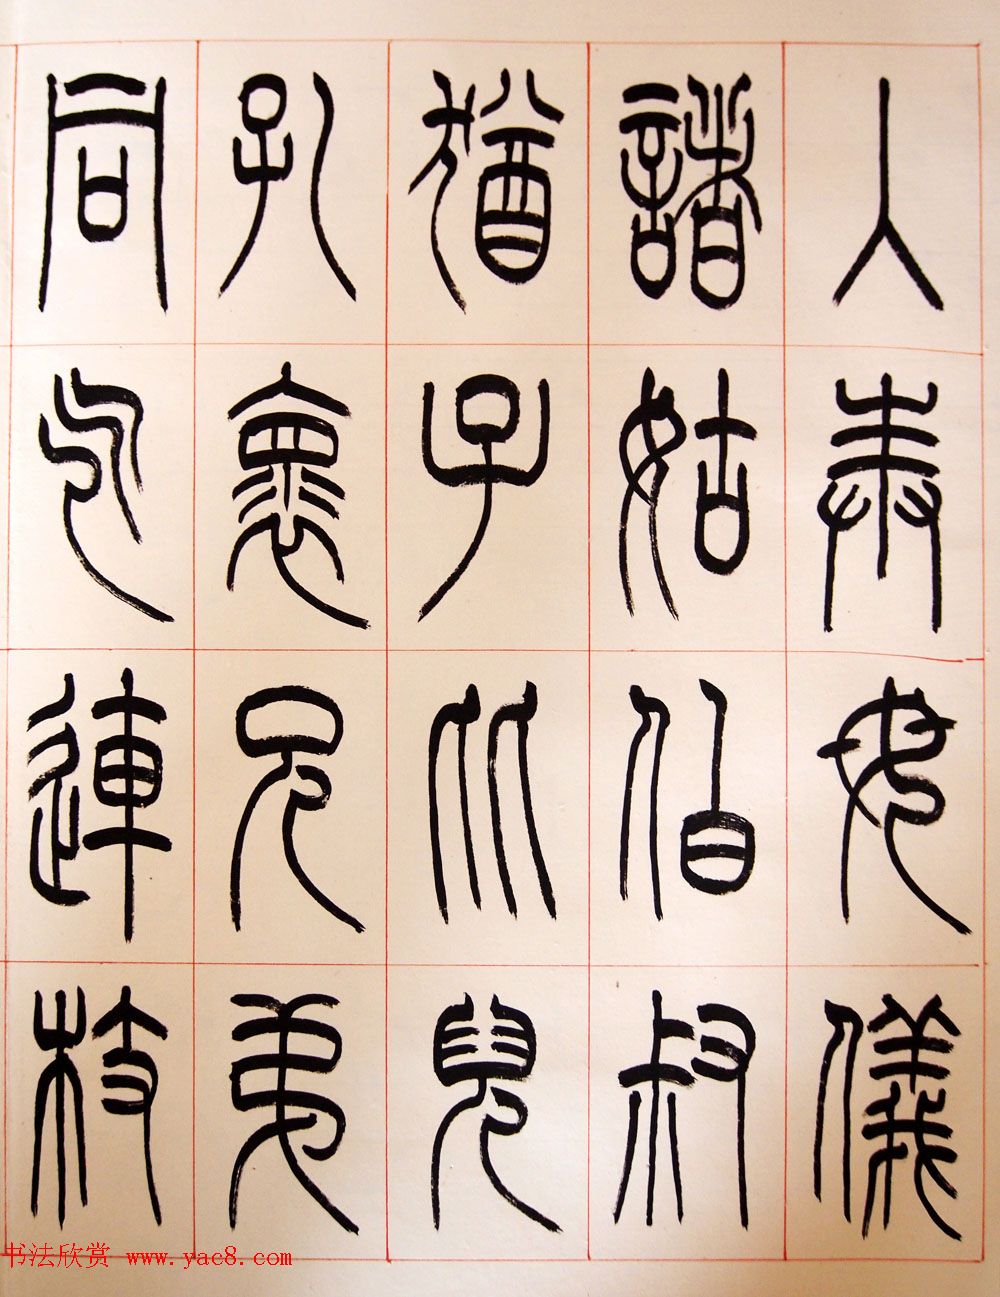 入奉母儀
諸姑伯叔
猶子比兒
孔褱兄弟
同气連枝
书法欣赏 www.yac8.com